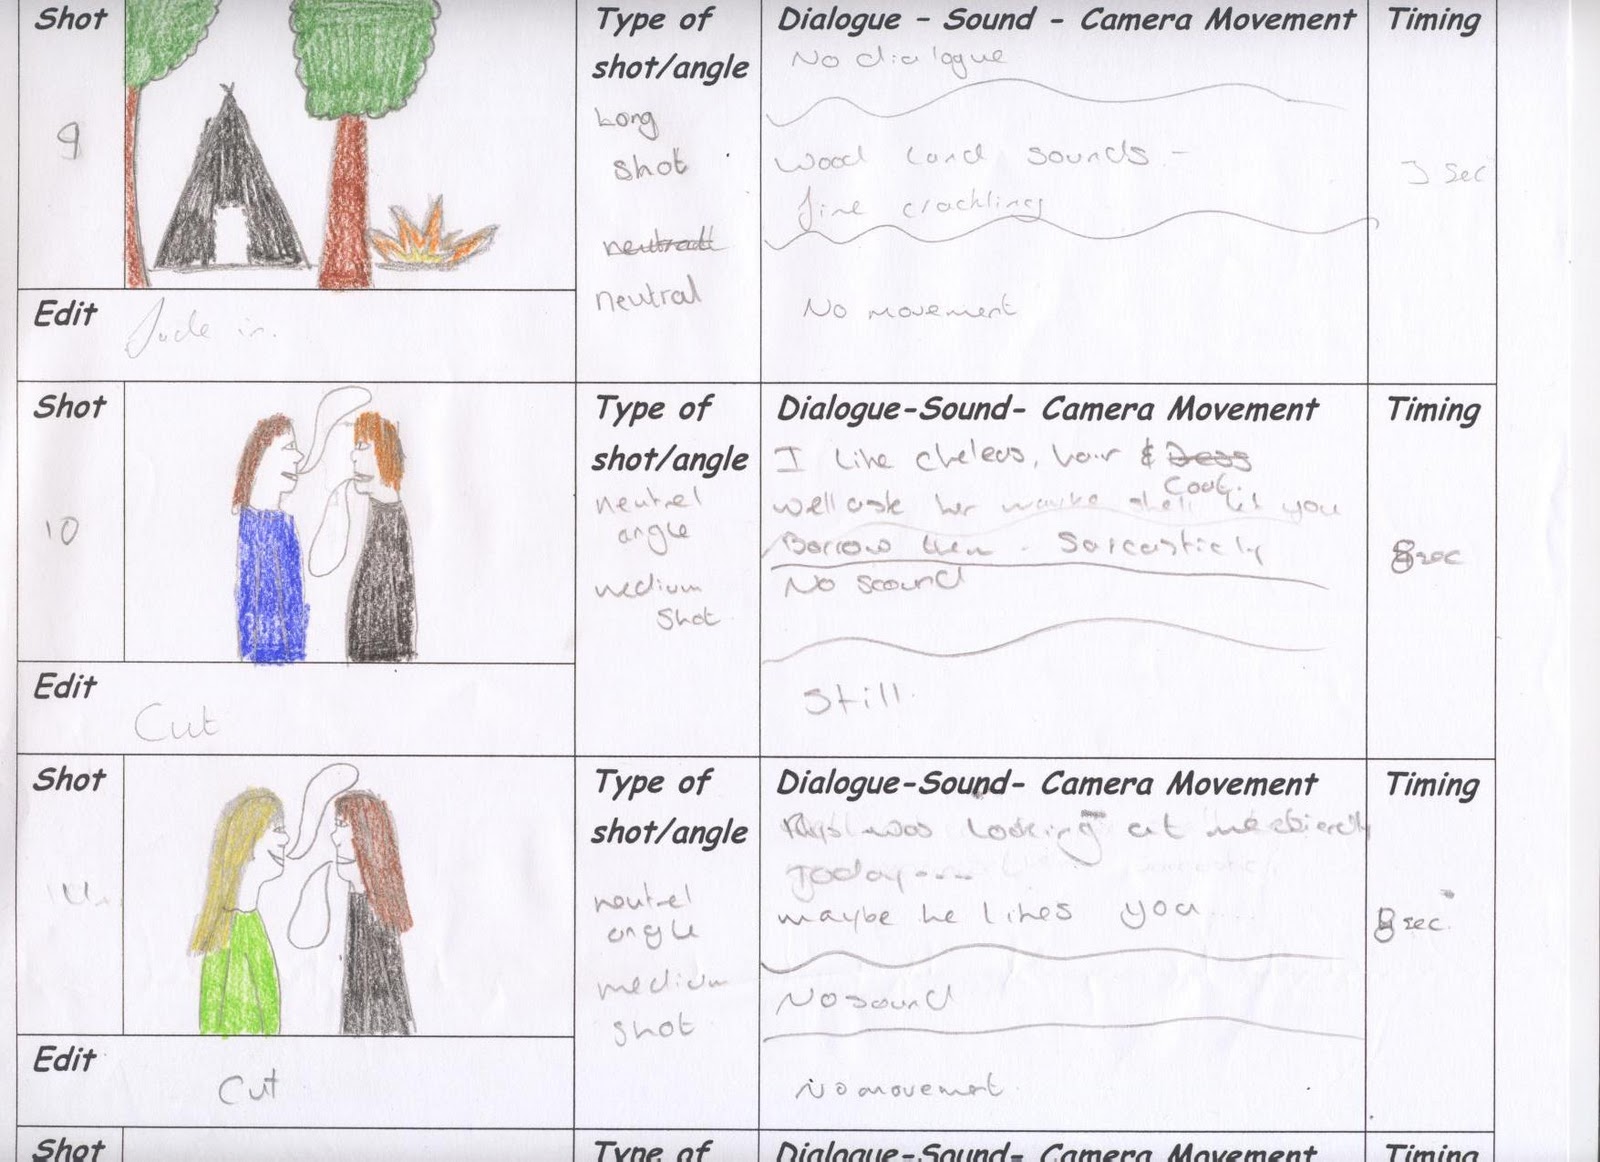 Shot
Type of
shot/angle
Dialogue - Sound - Camera Movement
Timing
9
Long
shot
neutral
No dialogue
Wood land sounds -
fire crackling
No movement
3 sec
Edit
fade in.
Shot
Type of
shot/angle
Dialogue-Sound- Camera Movement
Timing
10
neutrel
angle
medium
shot
I like cheleas, hair &
Coat.
well ask her maybe shell let you
Borrow them - Sarcasticly
No sound
Still.
8 sec
Edit
Cut
Shot
Type of
shot/angle
Dialogue-Sound- Camera Movement
Timing
neutrel
angle
medium
shot
was looking at me
Today----
maybe he likes you
No sound
No movement
8 sec.
Edit
Cut
Shot
Type of
Dialogue-Sound- Camera Movement
Timing